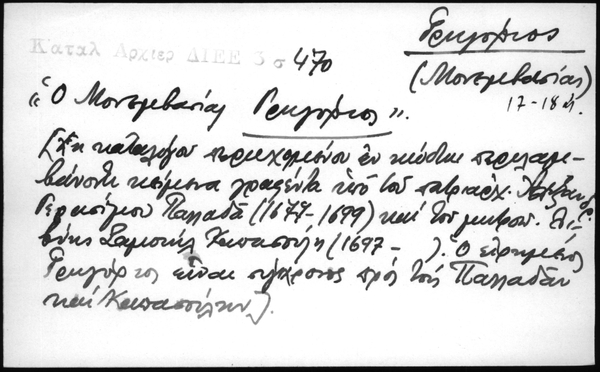 Καταλ Αρχιερ ΔΙΕΕ 3 σ 470
Γρηγόριος
(Μονεμβασίας)
17-18 αι.
"Ὁ Μονεμβασίας Γρηγόριος".
[Ἐκ καταλόγου περιεχομένου ἐν κώδικι περιλαμ-
βάνοντι κείμενα γραφέντα ὑπὸ τοῦ πατριάρχ. Ἀλεξανδρ.
Γερασίμου Παλλαδᾶ (1677-1699) καὶ τοῦ μητροπ.
Σαμουὴλ Καπασούλη (1697- ). Ὁ εἰρημένος
Γρηγόριος εἶναι σύγχρονος πρὸς τὸν Παλλαδᾶν
καὶ Καπασούλην].